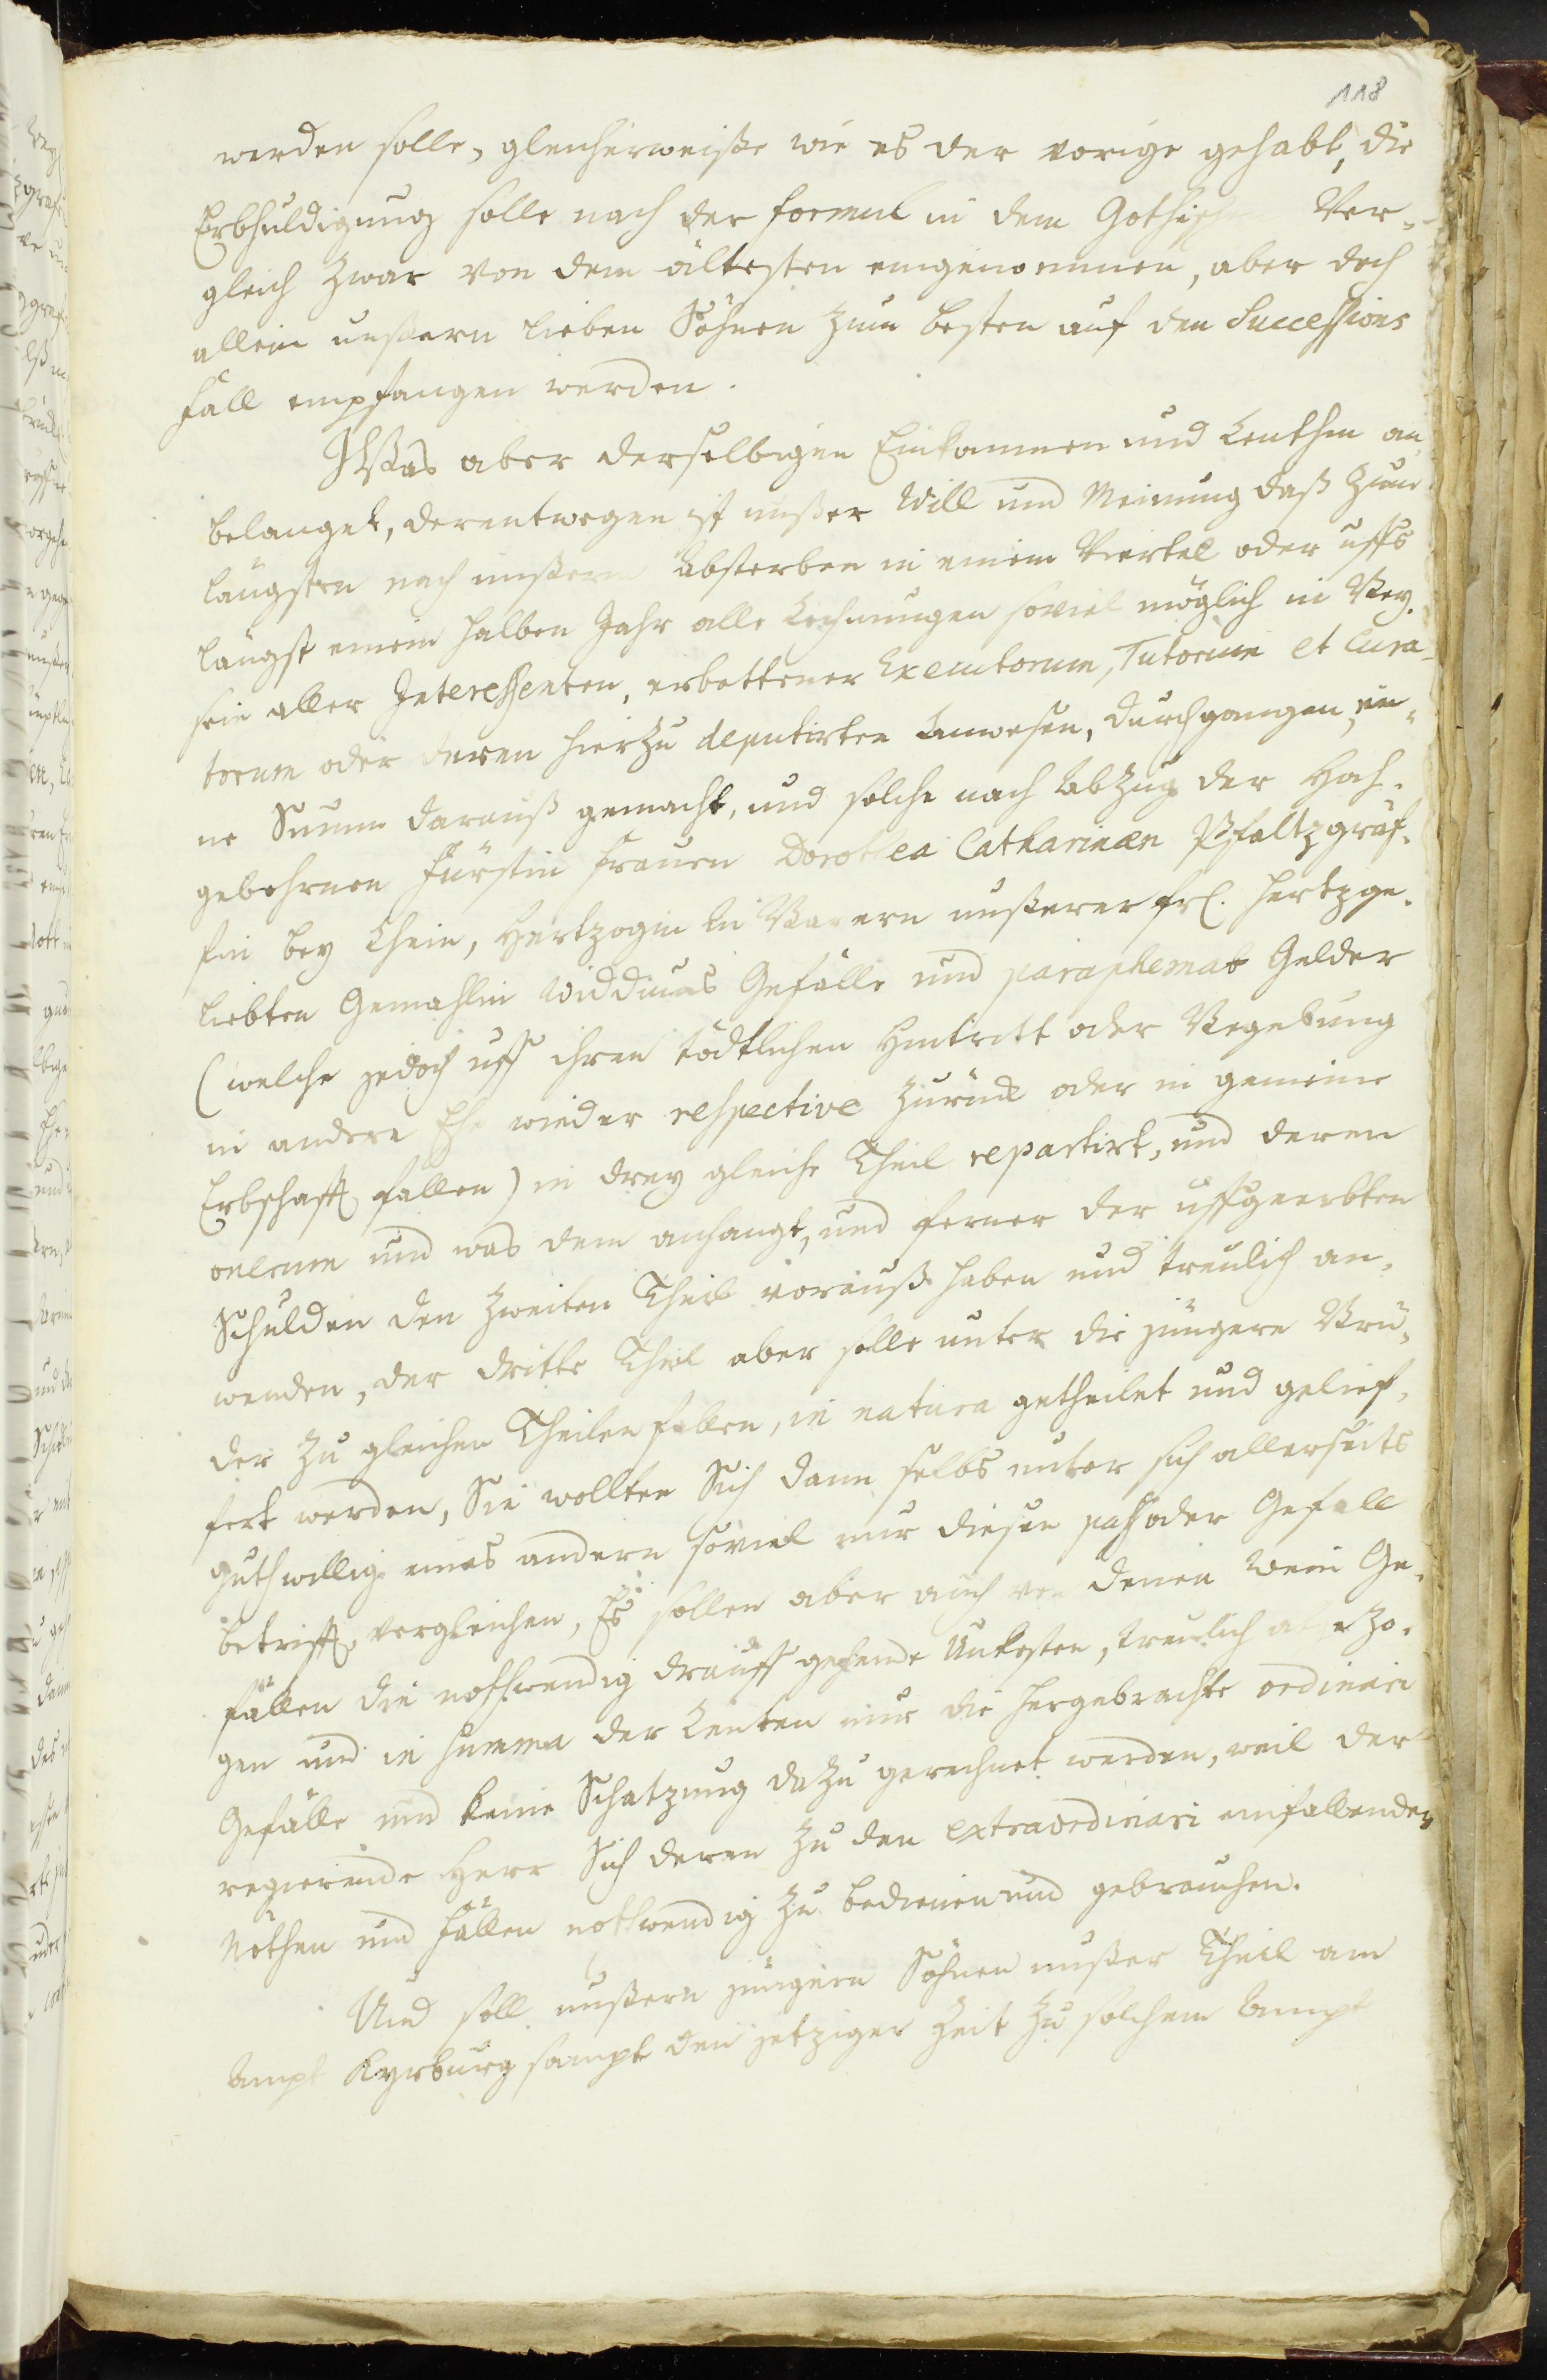 118
werden solle, gleicherweiße wie es der vorige gehabt, die
Erbhuldigung solle nach der formul in dem Gothisch Ver-
gleich zwar von dem ältesten eingenommen, aber doch
allein unßern lieben Söhnen zum besten auf den Successions
fall empfangen werden.
Was aber derselbigen Einkommen und Renthen an
belanget, derentwegen ist unßer Will und Meinung daß zum
längsten nach unßerm Absterben in einem Viertel oder uffs
längst einem halben Jahr alle Rechnungen soviel möglich in Bey-
sein aller Interessenten, erbettener Executorum, Tutorum et Cura-
torum oder deren hierzu deputirten Anwesen, durchgangen, ei-
ne Summ darauß gemacht, und solche nach Abzug der Hoch-
gebohrnen Fürstin Frauen Dorothea Catharinæn Pfaltzgräf-
fin bey Rhein, Hertzogin in Bayern unßerer frl. hertzge-
liebten Gemahlin Widdums Gefälle und paraphernat Gelder
(welche jedoch uff ihren tödtlichen Hintritt oder Begebung
in andere Ehe wieder respective zurück oder in gemeine
Erbschafft fallen) in drey gleiche Theil repartirt, und deren
onerum und was dem anhangt, und ferner der uffgeerbten
Schulden den zweiten Theil vorauß haben und treulich an-
wenden, der dritte Theil aber solle unter die jüngere Brü-
der zu gleichen Theilen fallen, in natura getheilet und gelief-
fert werden, Sie wollten Sich dann selbs unter sich allerseits
guthwillig eines andern soviel nur diesen pass oder Gefall
betrifft vergleichen, Es sollen aber auch von denen Wein Ge-
fällen die nothwendig drauff gehende Unkosten, treulich abgezo-
gen und in summa der Renten nur die hergebrachte ordinari
Gefälle und keine Schatzung dazu gerechnet werden, weil der
regierende Herr Sich deren zu den extraordinari einfallenden
Nöthen und Fällen nothwendig zu bedienen und gebrauchen.
Und soll unßern jüngern Söhnen unßer Theil am
Ampt Kyrburg sampt den jetziger Zeit zu solchem Ampt